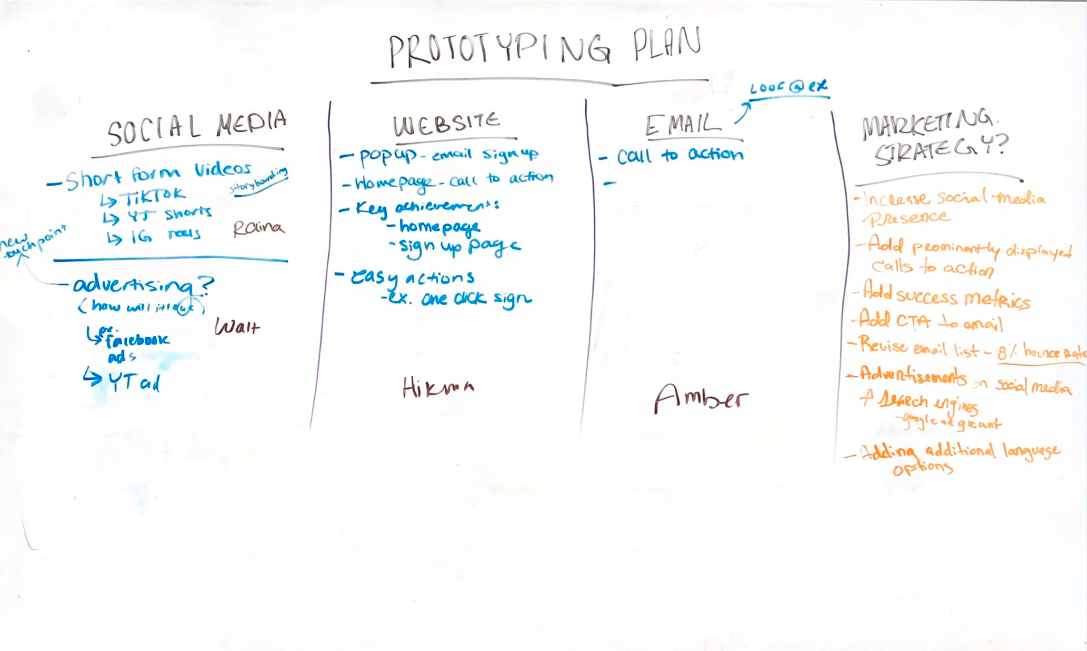 PROTOTYPING PLAN
SOCIAL MEDIA
- Short form videos
storyboarding
↳ TikTok
↳ YT shorts
↳ IG reels
Raina
new touchpoint
- advertising?
(how will it look)
↳ ex. facebook
ads
↳ YT ad
Walt
WEBSITE
- Popup - email sign up
- Homepage - call to action
- Key achievements
- homepage
- sign up page
- Easy actions
- ex. one click sign
Hikma
LOOK @ ex.
EMAIL
- Call to action
-
Amber
MARKETING
STRATEGY?
- Increase social media
presence
- Add prominently displayed
calls to action
- Add success metrics
- Add CTA to email
- Revise email list - 8% bounce rate
- Advertisements on social media
+ search engines
- google ad grant
- Adding additional language
options